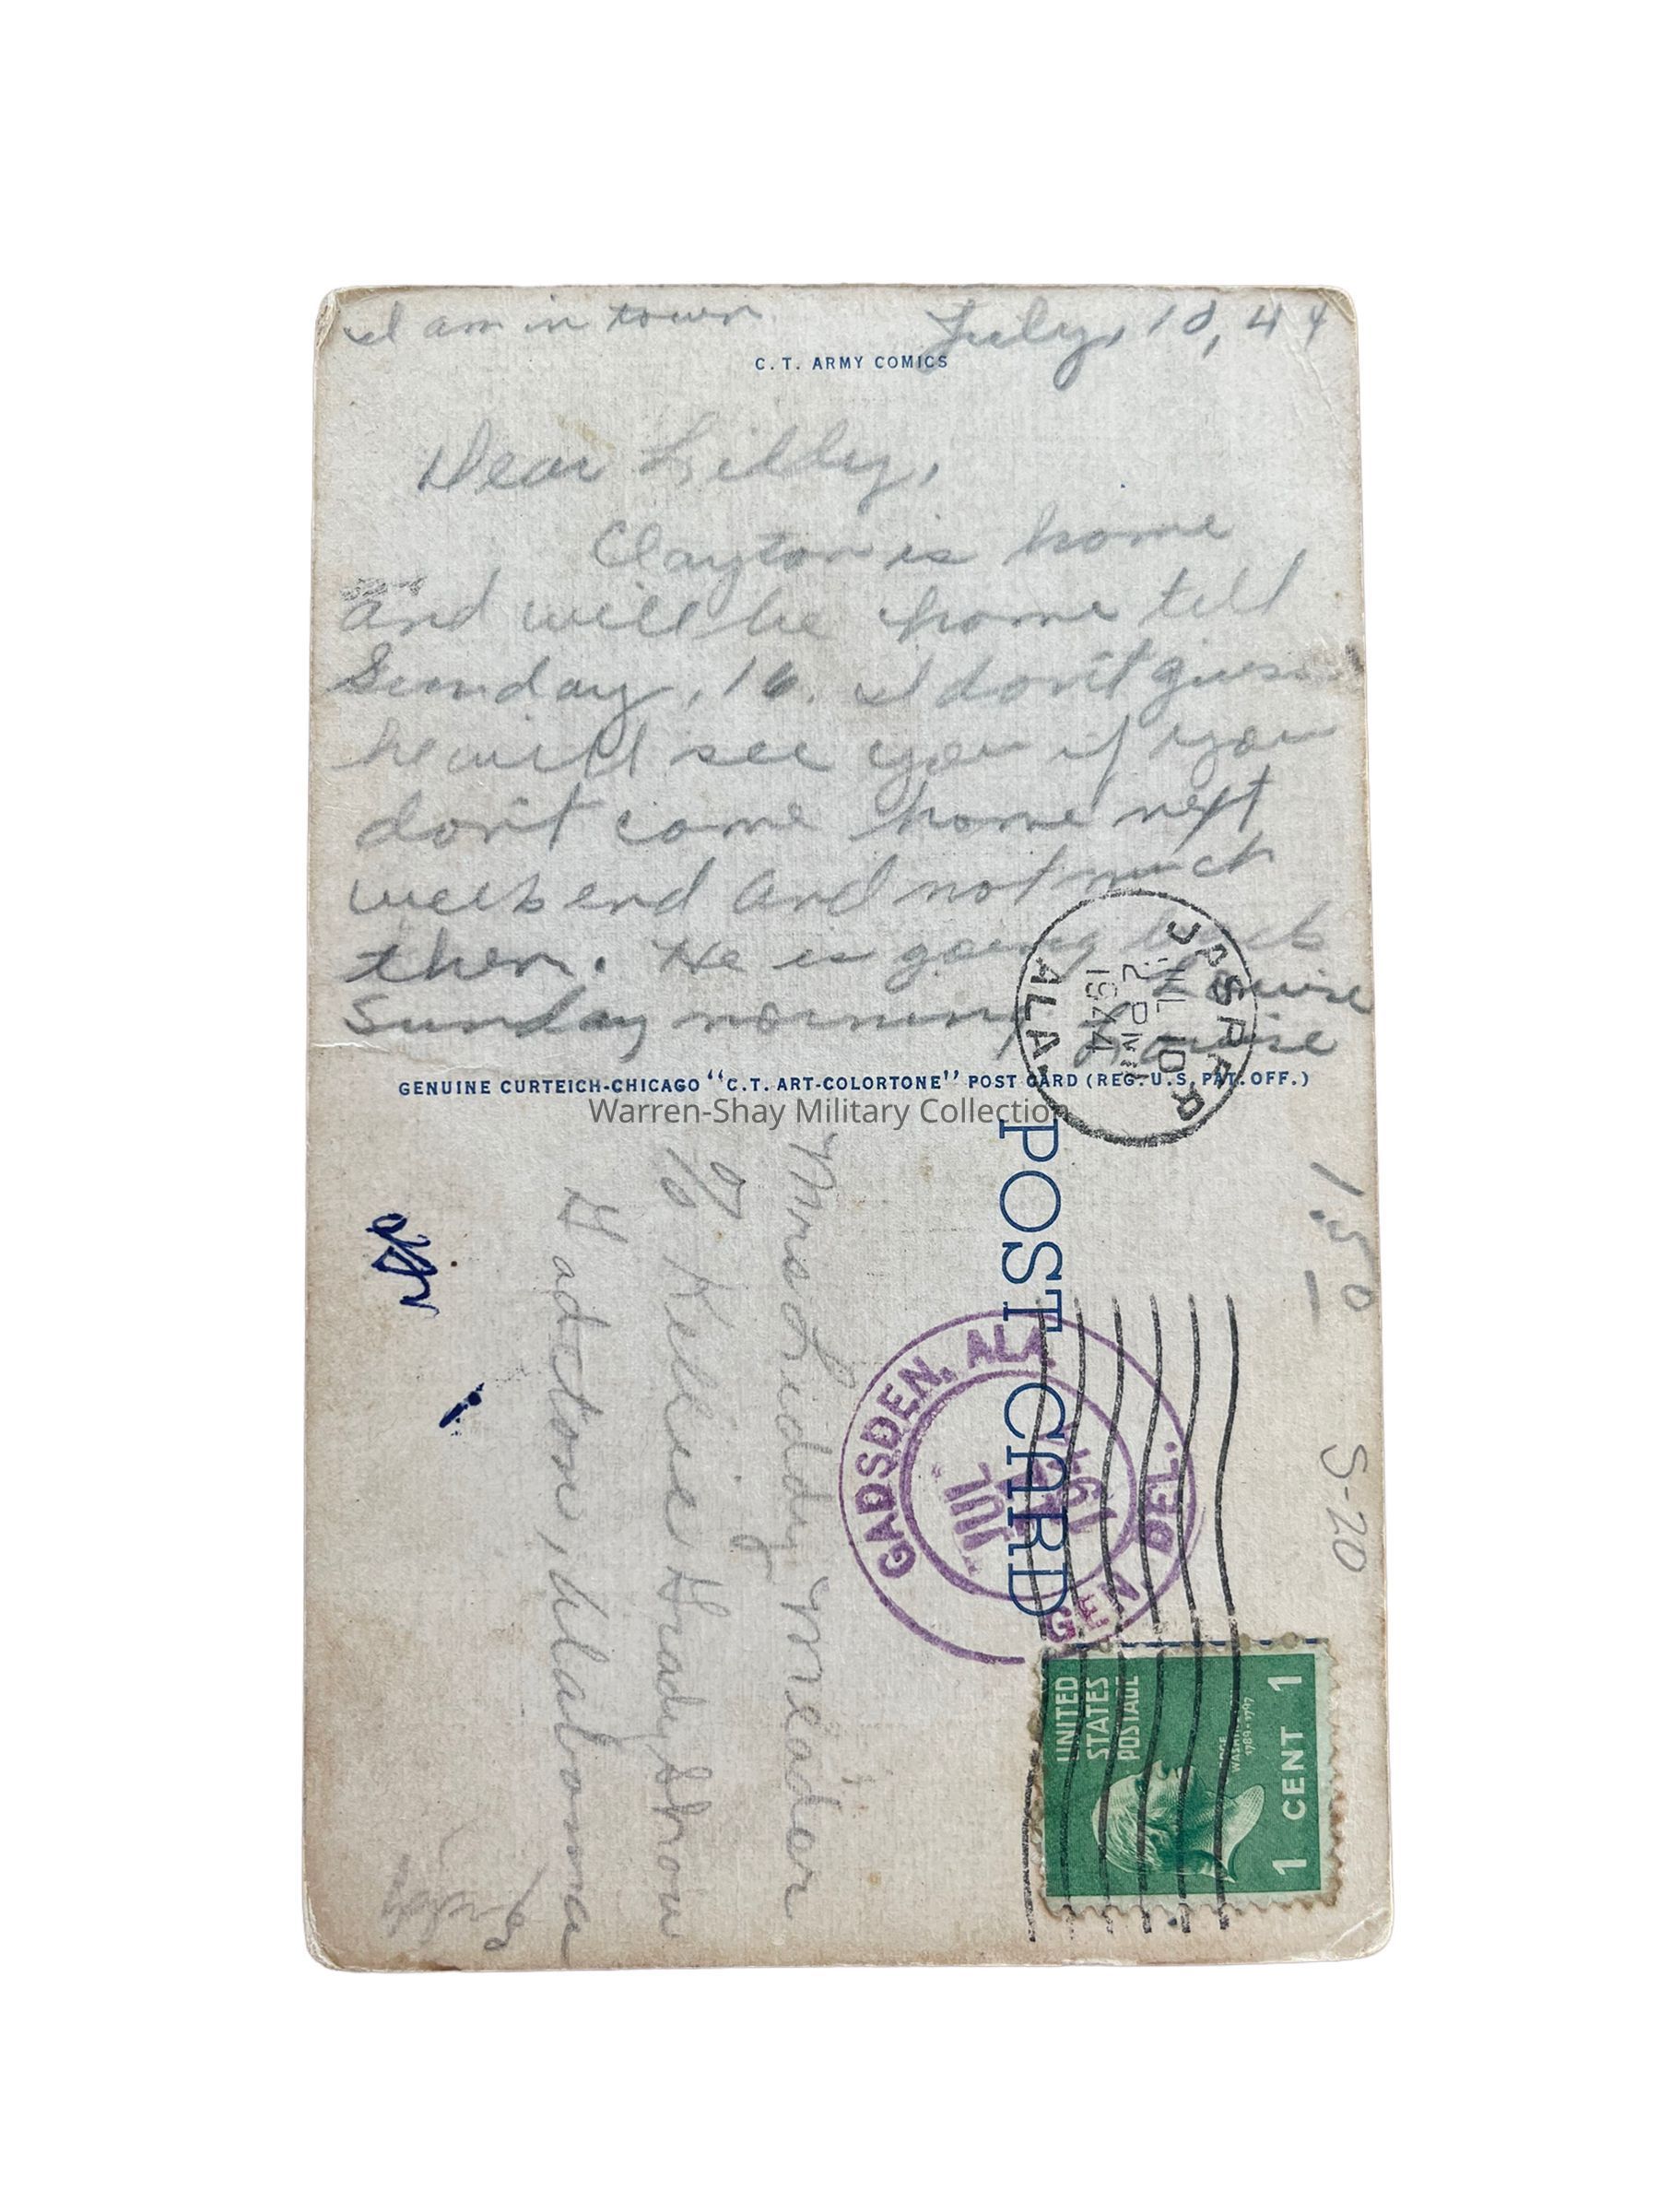 I am in town July, 10, 44
C. T. ARMY COMICS
Dear Libby,
Clayton is home
and will be home till
Sunday, 16. I don't guess
he will see you if you
don't come home next
weekend and not much
then. He is going back
Sunday morning Louise
Louise
GENUINE CURTEICH-CHICAGO "C.T. ART-COLORTONE" POST CARD (REG. U.S. PAT. OFF.)
Warren-Shay Military Collection
JASPER
JUL 10
2 PM
1944
ALA.
POST CARD
Mrs Liddy Meader
% Kellie Grady Show
Gadston, Alabama
GADSDEN, ALA.
JUL
1944
GEN. DEL.
1.50
S-20
UNITED
STATES
POSTAGE
1789-1797
1 CENT 1